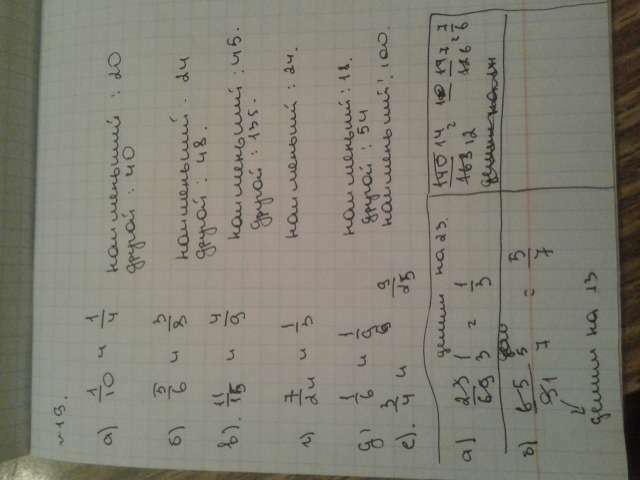 №19.
а) 1/10 и 1/4 наименьший : 20
другой : 40
б) 5/6 и 3/8 наименьший - 24
другой : 48.
в). 11/15 и 4/9 наименьший : 45.
другой : 135.
г) 7/24 и 1/3 наименьший : 24.
д) 1/6 и 1/9 наименьший : 18.
другой : 54
е). 3/4 и 9/25 наименьший : 100.
делим на 23.
а) 23/69 1/3 = 1/3
б) 65/91 5/7 = 5/7
делим на 13
14/12 = 7/6